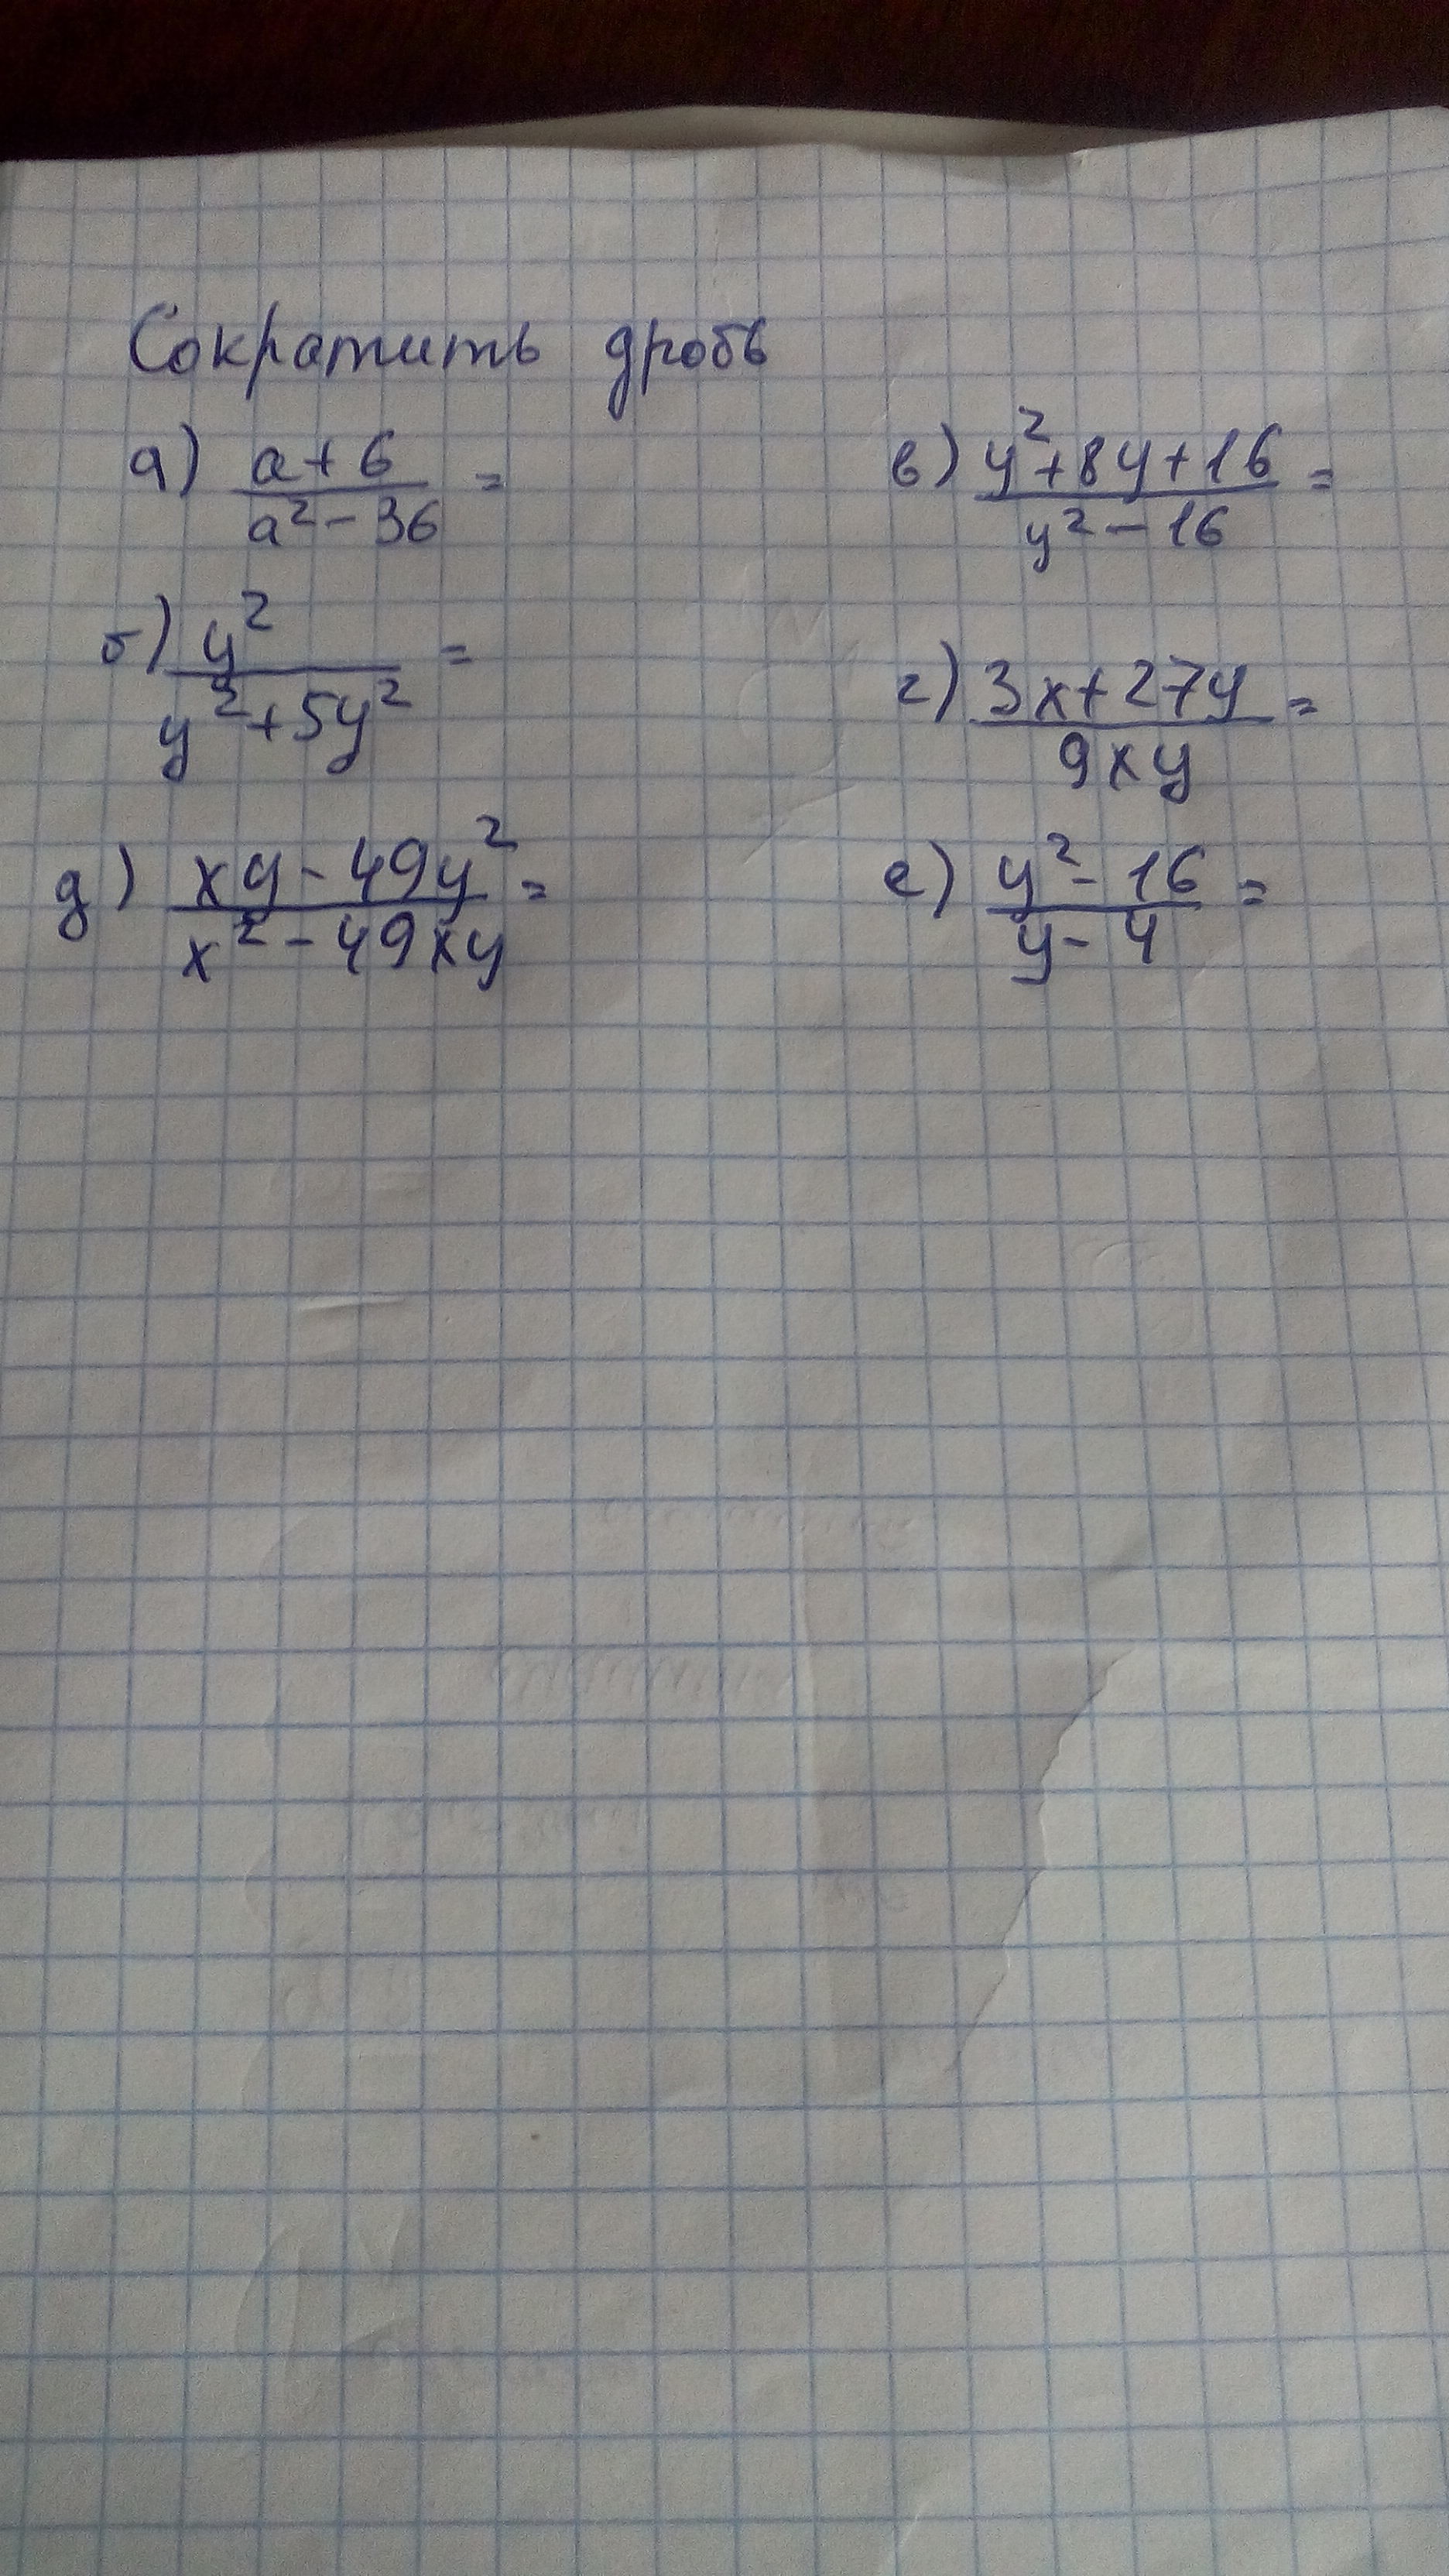 Сократить дробь
а) (a+6)/(a²-36) =
в) (y²+8y+16)/(y²-16) =
б) y²/(y²+5y²) =
г) (3x+27y)/(9xy) =
д) (xy-49y²)/(x²-49xy) =
е) (y²-16)/(y-4) =